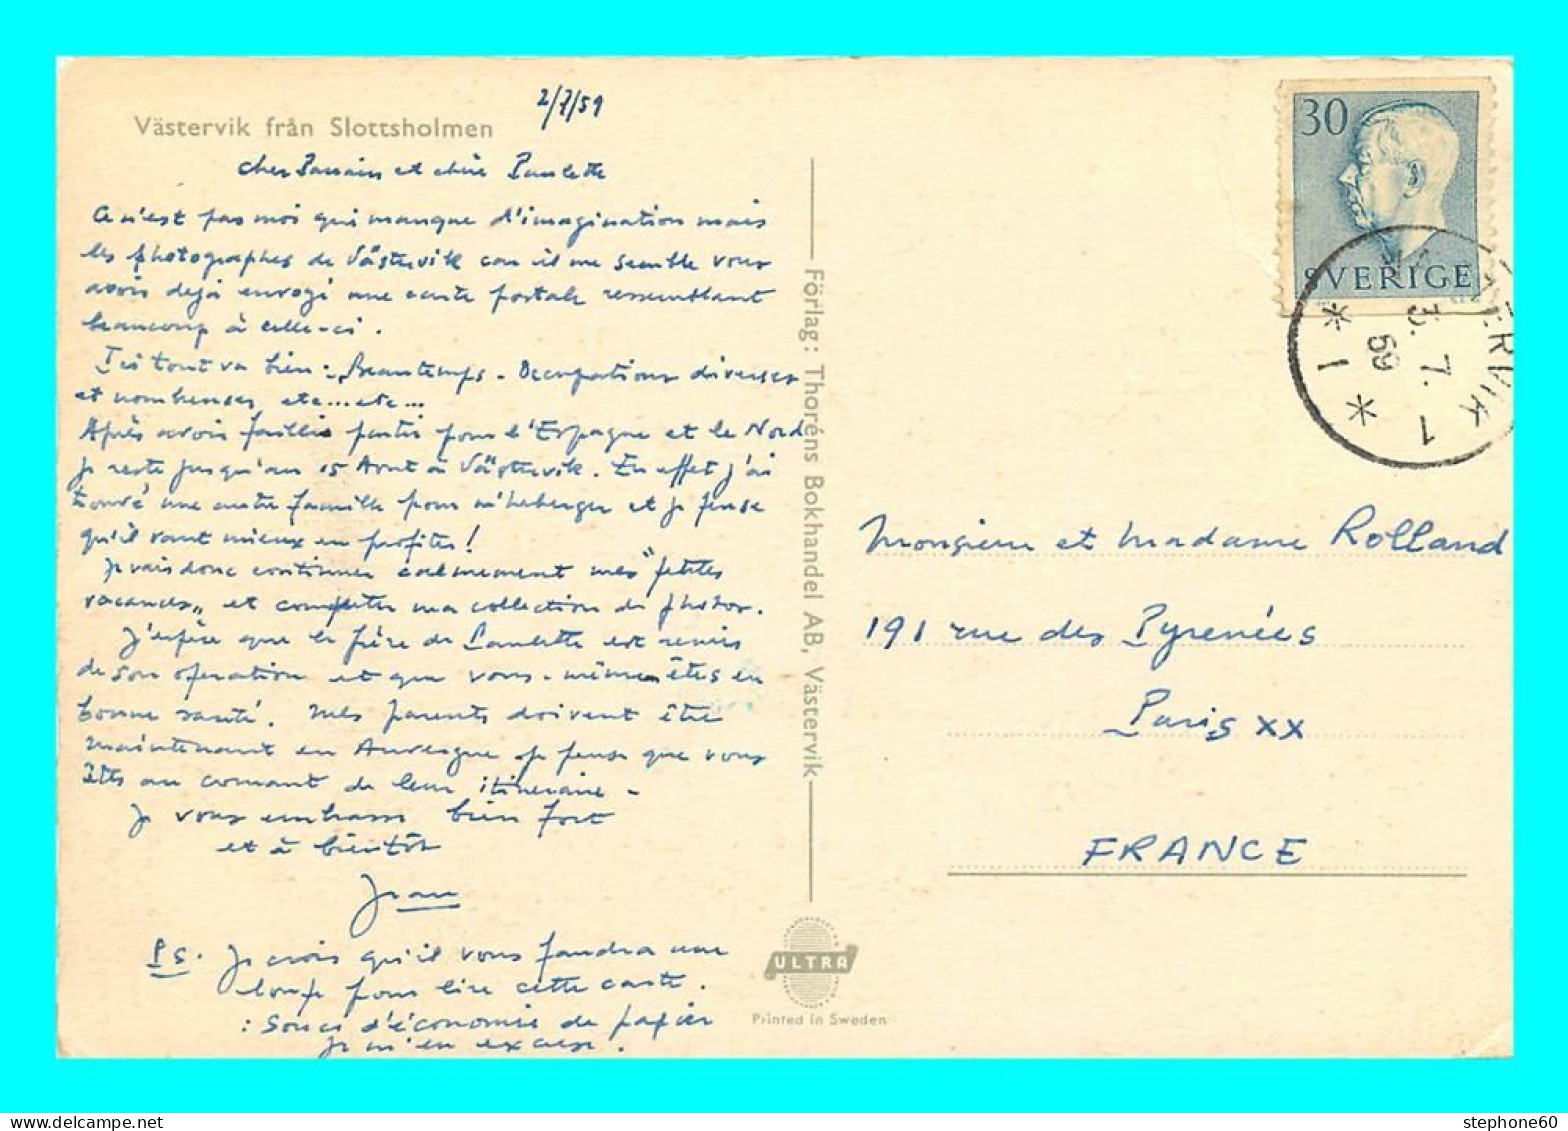 Västervik från Slottsholmen
2/7/59
cher Parrain et chère Paulette
Ce n'est pas moi qui manque d'imagination mais
les photographes de Västervik car il me semble vous
avoir dejà envoyé une carte postale ressemblant
beaucoup à celle-ci.
Ici tout va bien : Beautemps - Occupations diverses
et nombreuses, etc...etc...
Après avoir failli partir pour l'Espagne et le Nord
je reste jusqu'au 15 Aout à Västervik. En effet j'ai
trouvé une autre famille pour m'heberger et je pense
qu'il vaut mieux en profiter!
Je vais donc continuer calmement mes "petites
vacances" et completer ma collection de photos.
J'espère que le frère de Paulette est remis
de son operation et que vous-même êtes en
bonne santé. Mes parents doivent être
maintenant en Auvergne je pense que vous
êtes au courant de leur itineraire -
Je vous embrasse bien fort
et à bientôt
Jean
PS. Je crois qu'il vous faudra une
loupe pour lire cette carte.
: Souci d'économie de papier
Je m'en excuse.
Förlag: Thoréns Bokhandel AB, Västervik
ULTRA
Printed in Sweden
30
SVERIGE
VÄSTERVIK 1
3. 7.
59
* 1 *
Monsieur et Madame Rolland
191 rue des Pyrenées
Paris XX
FRANCE
stephone60